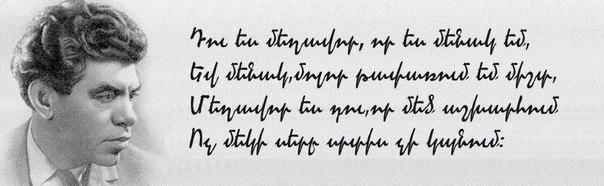 Դու ես մեղավոր, որ ես մենակ եմ,
Եվ մենակ,մոլոր թափառում եմ միշտ,
Մեղավոր ես դու,որ մեծ աշխարհում
Ոչ մեկի սերը սրտիս չի կպնում: